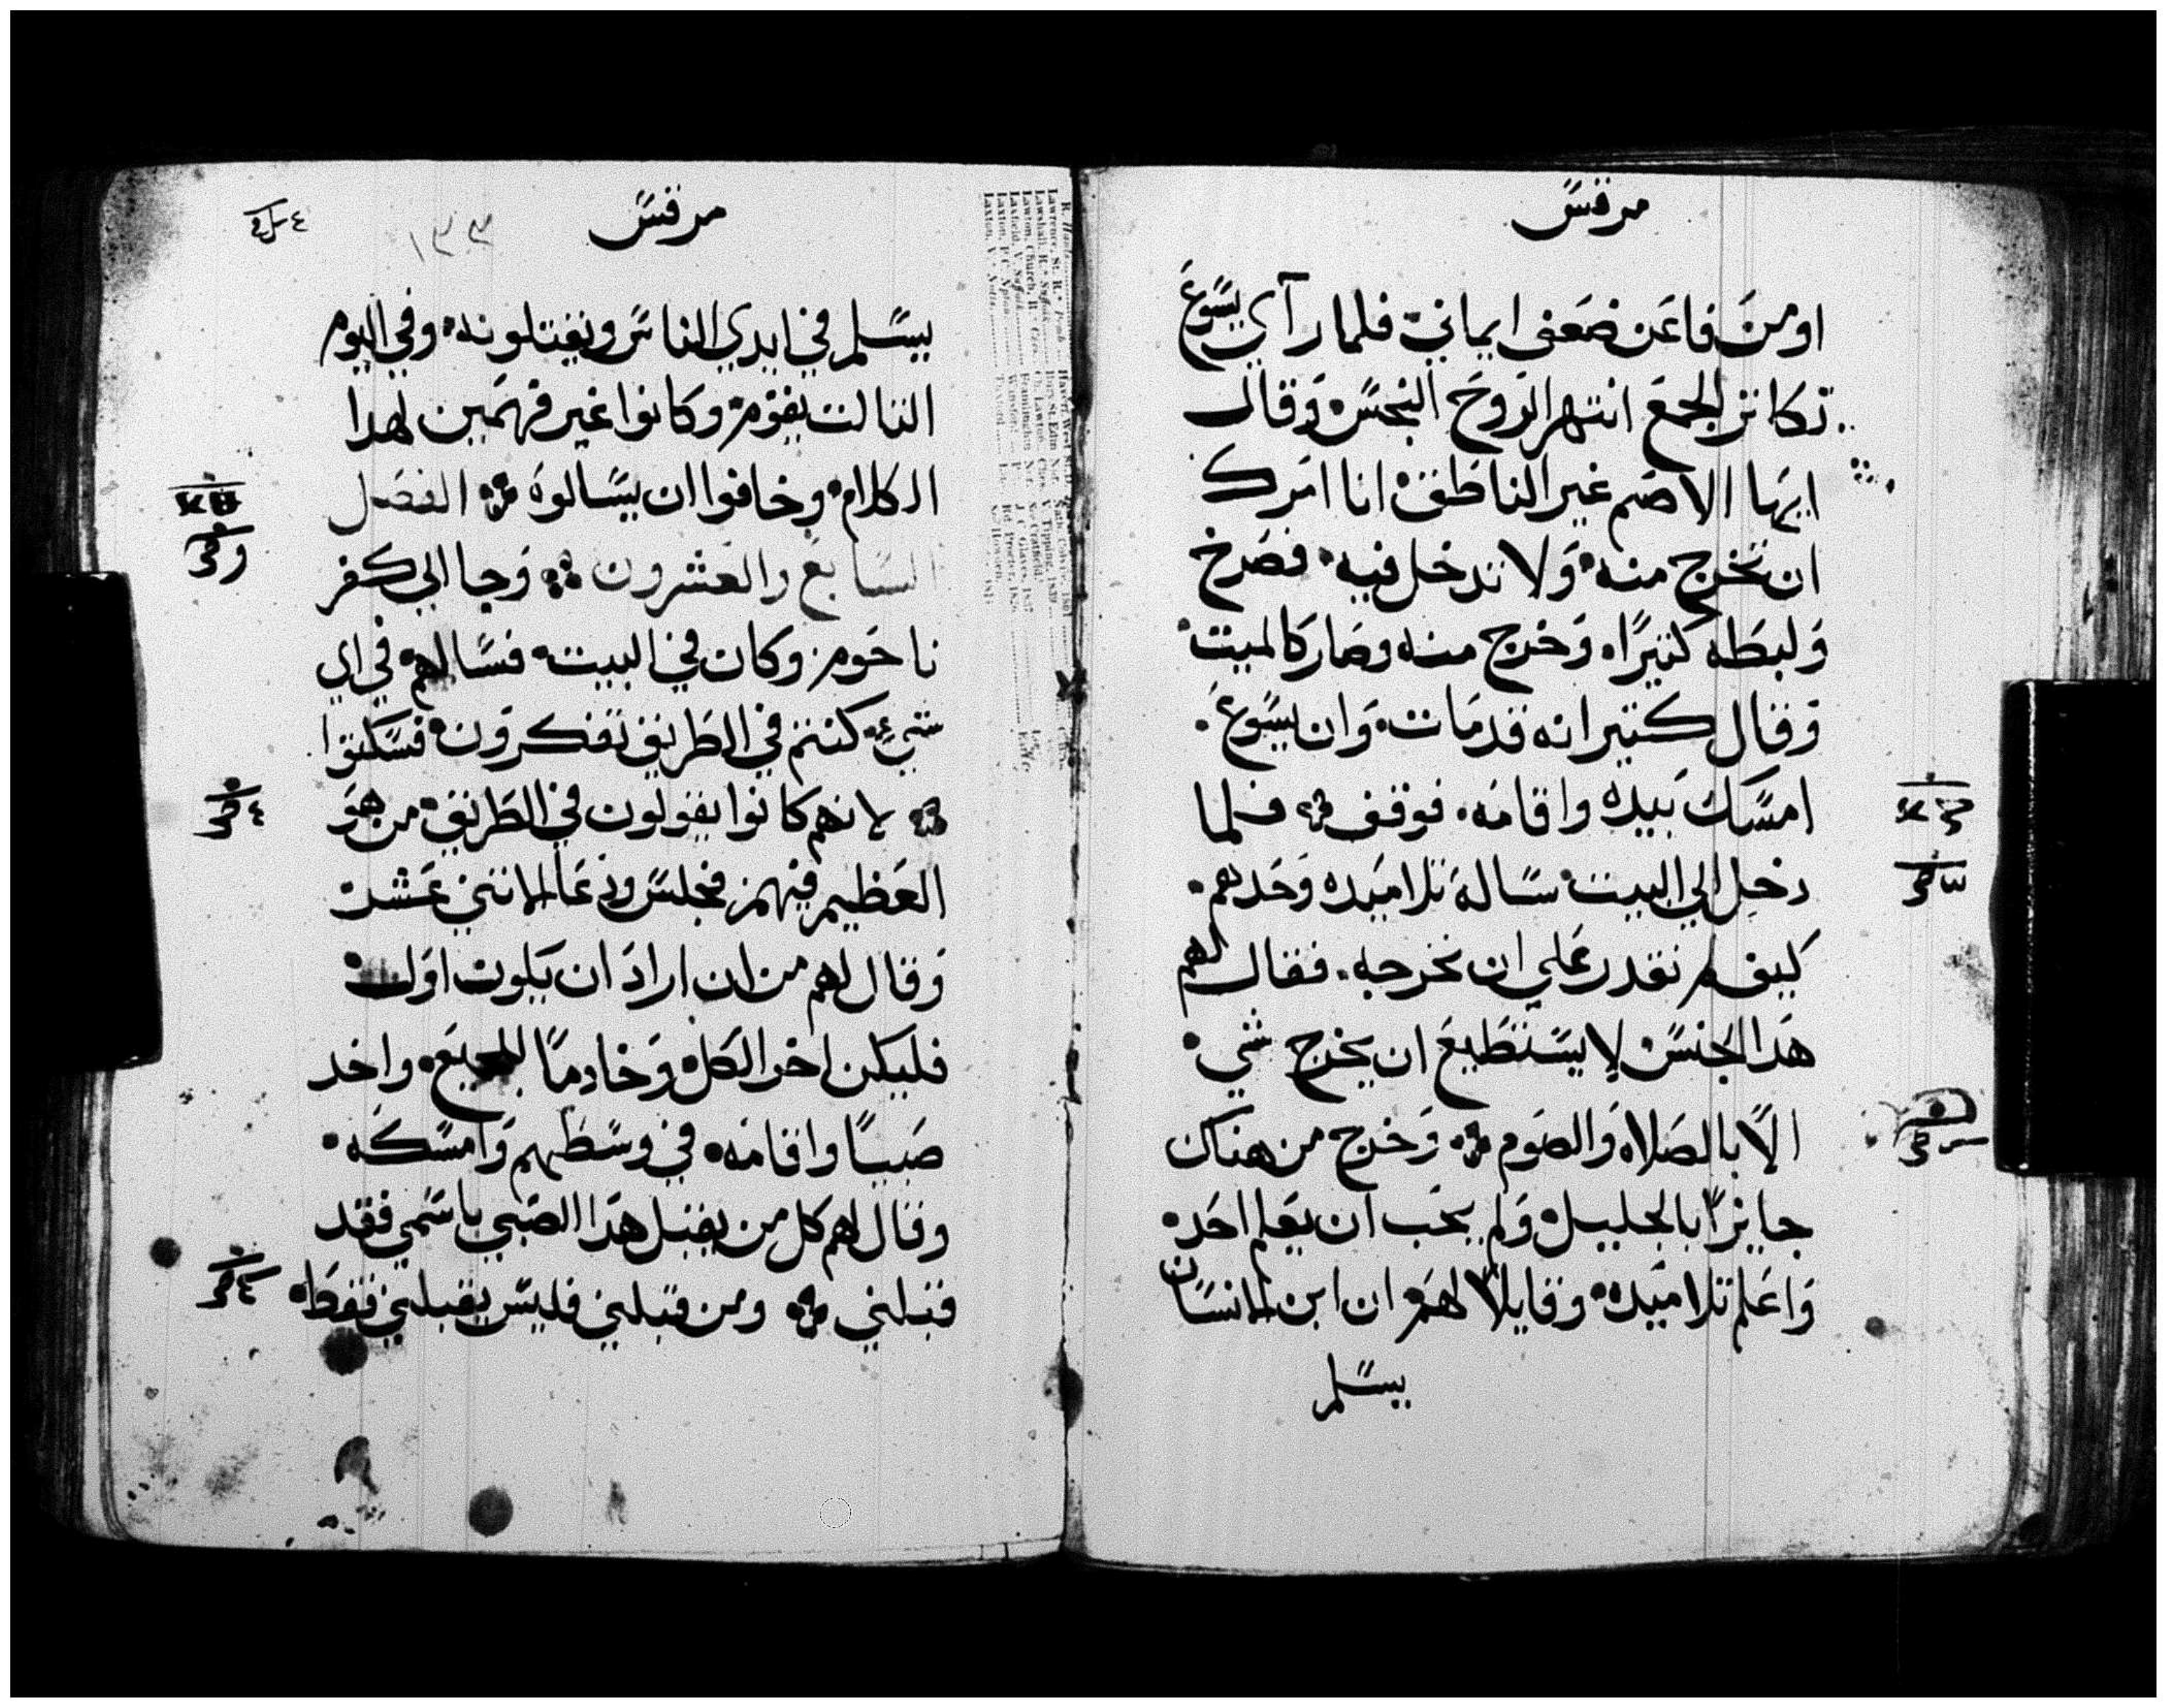 مرقس
اومن فاعن ضعف ايماني فلما رآي يسوع
تكاثر الجمع انتهر الروح النجس وقال
ايها الاصم غير الناطق انا امرك
ان تخرج منه ولا تدخل فيه فصرخ
ولبطه كثيرًا وخرج منه وصار كالميت
وقال كثير انه قد مات وان يسوع
امسك بيده واقامه فوقف فلما
دخل الي البيت ساله تلاميده وحدهم
كيف لم نقدر علي ان نخرجه فقال لهم
هدا الجنس لا يستطيع ان يخرج شي
الا بالصلاه والصوم وخرج من هناك
جايزًا بالجليل ولم يحب ان يعلم احد
واعلم تلاميده وقايلا لهم ان ابن الانسان
يسلم
مرقس
١٣٣
يسلم في ايدي الناس ويقتلونه وفي اليوم
الثالث يقوم وكانوا غير فهمين لهدا
الكلام وخافوا ان يسالوه الفصل
السابع والعشرون وجا الي كفر
ناحوم وكان في البيت فسالهم في اي
شيء كنتم في الطريق تفكرون فسكتوا
لانهم كانوا يقولون في الطريق من هو
العظيم فيهم فجلس ودعا الاثني عشر
وقال لهم من ان اراد ان يكون اول
فليكن اخر الكل وخادمًا للجميع واخد
صبيًا واقامه في وسطهم وامسكه
وقال لهم كل من يقبل هدا الصبي باسمي فقد
قبلني ومن قبلني فليس يقبلني فقط